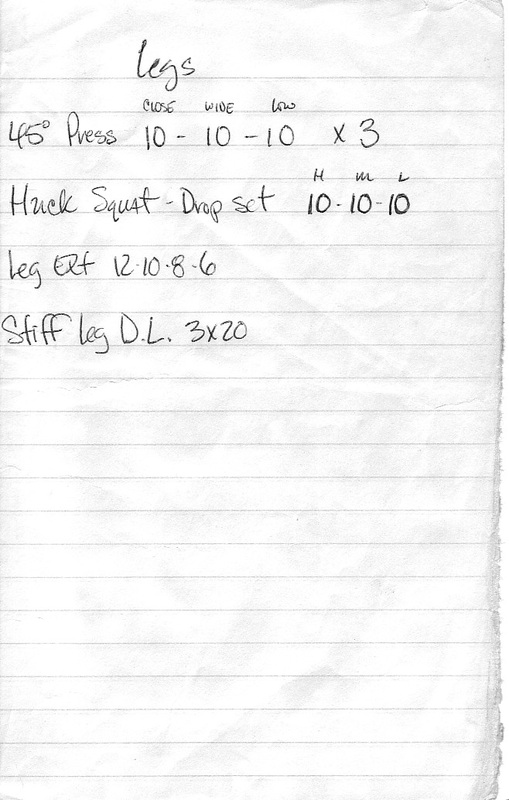 Legs
CLOSE WIDE LOW
45° Press 10 - 10 - 10 x 3
H M L
Hack Squat - Drop set 10 - 10 - 10
Leg Ext 12-10-8-6
Stiff Leg D.L. 3x20